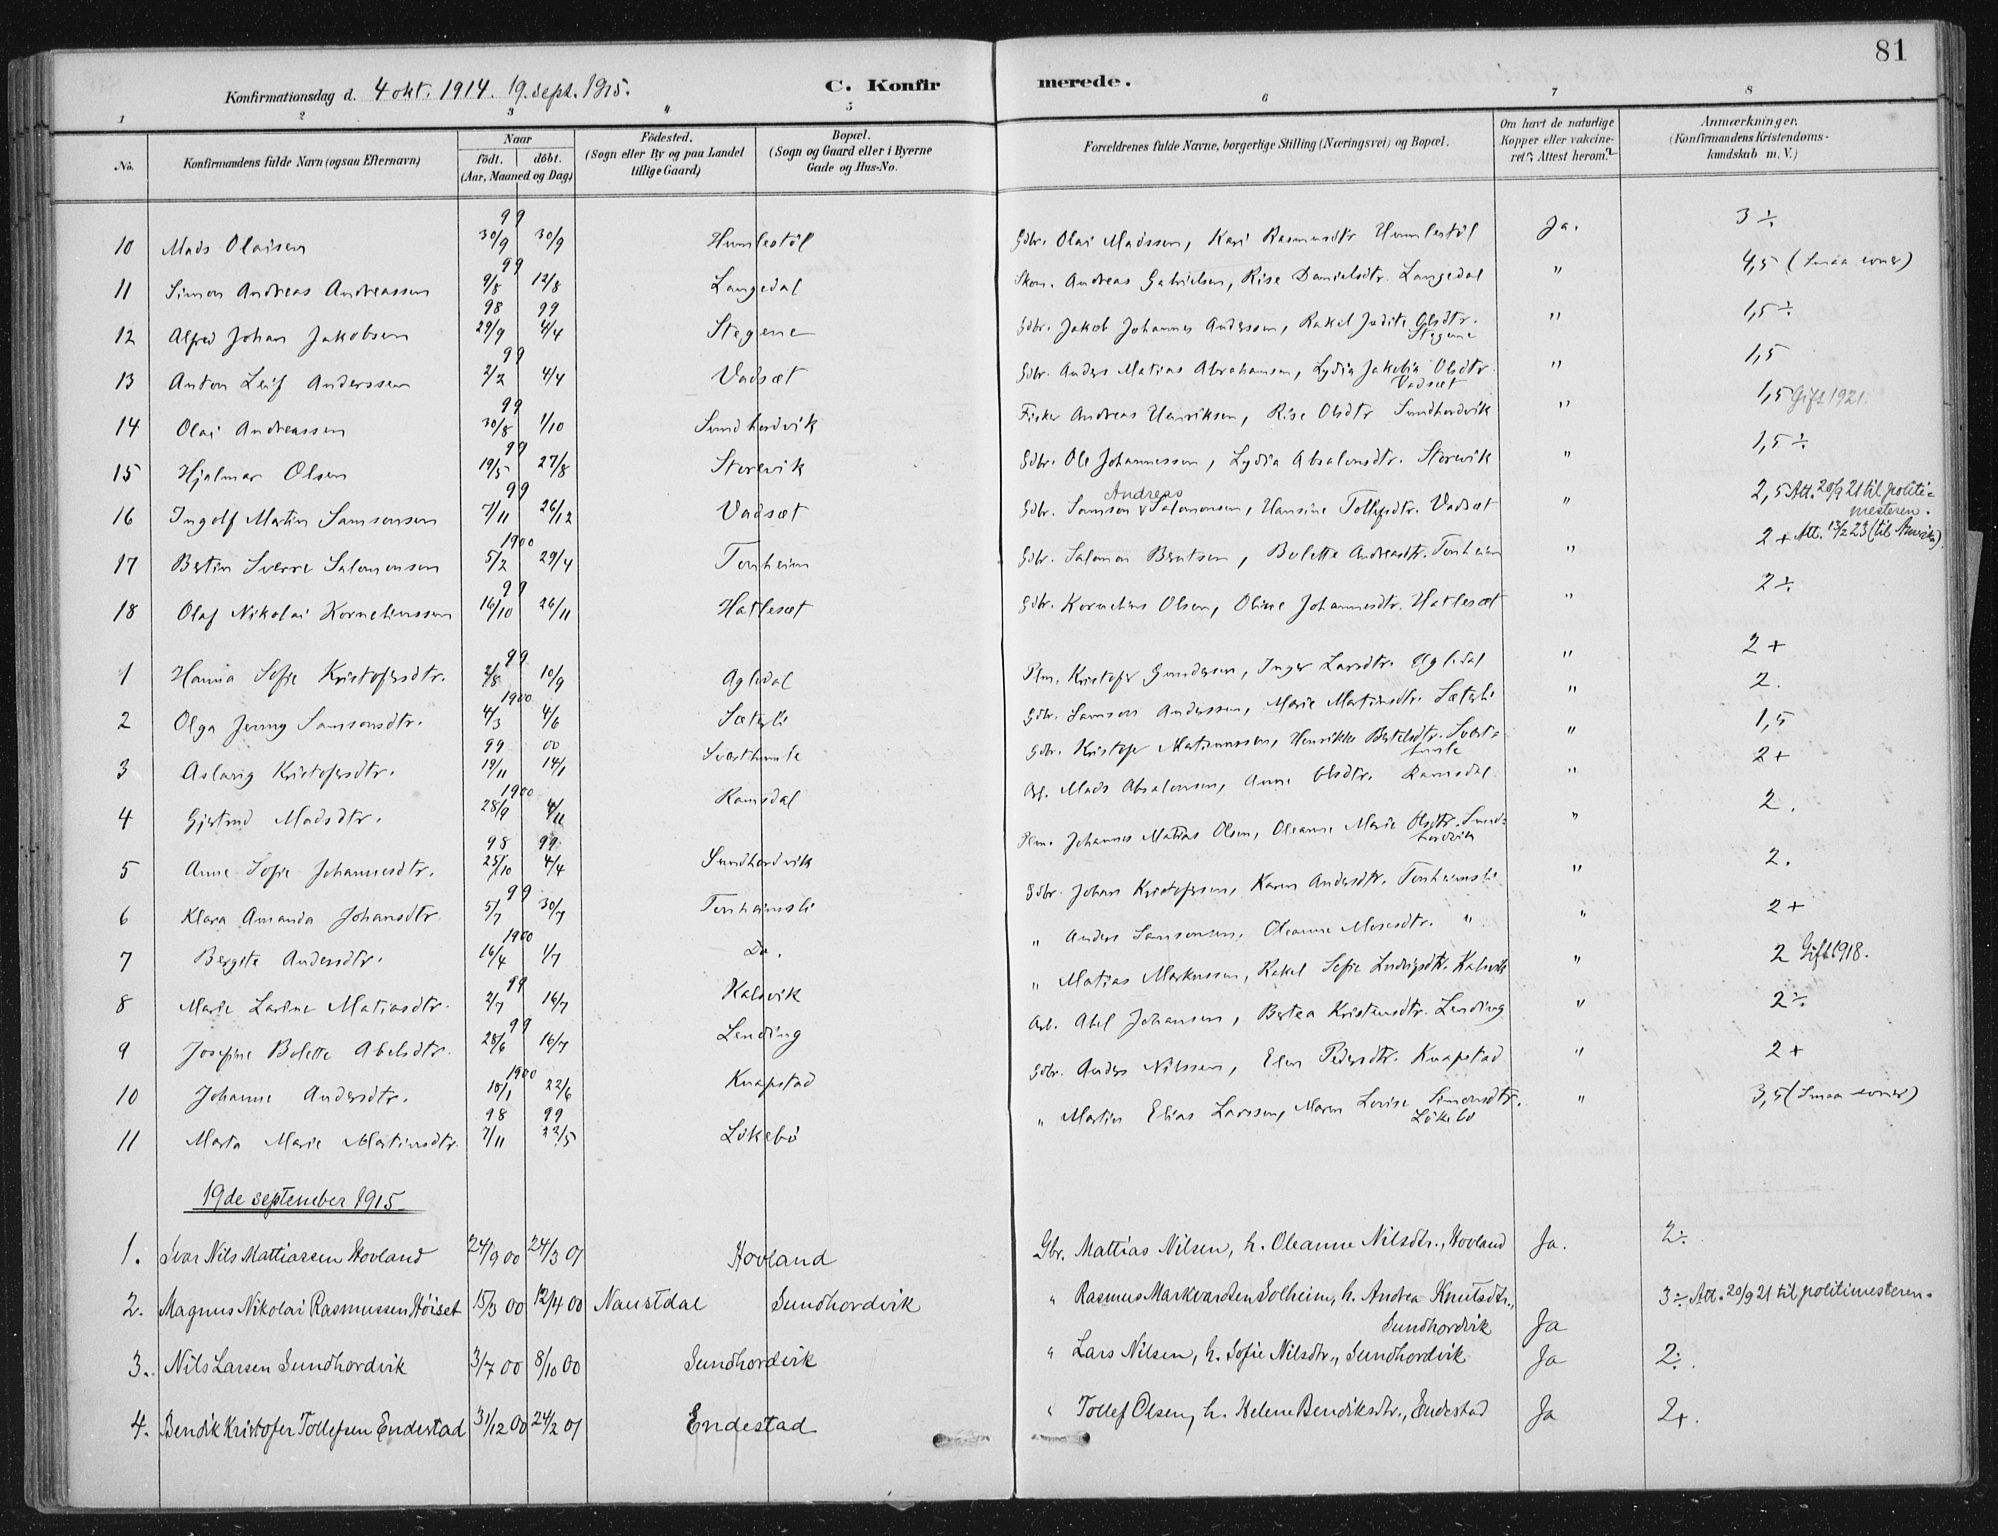 81
Konfirmationsdag d. 4 okt. 1914. 19. sept. 1915. C. Konfirmerede.
1 2 3 4 5 6 7 8
No. Konfirmandens fulde Navn (ogsaa Efternavn) Naar födt. döbt. (Aar, Maaned og Dag) Födested. (Sogn eller By og paa Landet tillige Gaard) Bopæl. (Sogn og Gaard eller i Byerne Gade og Hus-No. Forældrenes fulde Navne, borgerlige Stilling (Næringsvei) og Bopæl. Om havt de naturlige Kopper eller vakcineret? Attest herom? Anmærkninger. (Konfirmandens Kristendomskundskab m. V.)
10 Mads Olaisen 99 30/9 30/9 Humlestøl Gdbr. Olai Madssen, Kari Rasmusdtr Humlestøl Ja. 3 ÷
11 Simon Andreas Andreassen 99 9/8 12/8 Langedal Skom. Andreas Gabrielsen, Rise Danielsdtr. Langedal " 4,5 (Smaa evner)
12 Alfred Johan Jakobsen 98 99 29/9 4/4 Stegene Gdbr. Jakob Johannes Anderssen, Rakel Judite Olsdtr. Stegene " 1,5 ÷
13 Anton Leif Anderssen 99 2/2 4/4 Vadsæt Gdbr. Anders Matias Abrahamsen, Lydia Jakobia Olsdtr. Vadsæt " 1,5
14 Olai Andreassen 99 30/8 1/10 Sundhordvik Fisker Andreas Henriksen, Rise Olsdtr Sundhordvik " 1,5 Gift 1921.
15 Hjalmar Olsen 99 19/5 27/8 Storevik Gdbr. Ole Johannessen, Lydia Absalonsdtr. Storevik " 1,5 ÷
16 Ingolf Martin Samsonsen 99 7/11 26/12 Vadsæt Gdbr. Samson Andreas Salomonsen, Hansine Tollefsdtr. Vadsæt " 2,5 Att. 20/9 21 til politimesteren.
17 Bertin Sverre Salomonsen 1900 5/2 29/4 Tonheim Gdbr. Salomon Berntsen, Bolette Andreasdtr. Tonheim " 2 + Att. 13/2 23 (til Amerika).
18 Olaf Nikolai Korneliussen 99 16/10 26/11 Hatlesæt Gdbr. Kornelius Olsen, Oline Johannesdtr. Hatlesæt " 2 ÷
1 Hanna Sofie Kristofersdtr. 99 2/8 10/9 Agledal Plm. Kristofer Gundersen, Inger Larsdtr. Agledal " 2 +
2 Olga Jenny Samsonsdtr. 1900 4/3 4/6 Sæterli Gdbr. Samson Anderssen, Marie Martinsdtr. Sæterli " 2.
3 Aslaug Kristofersdtr. 99 00 19/11 14/1 Sværthumle Gdbr. Kristofer Matiassen, Henrikke Bertelsdtr. Sværthumle " 1,5
4 Gjertrud Madsdtr. 1900 28/9 4/11 Ramsdal Arb. Mads Absalonsen, Anne Olsdtr. Ramsdal " 2 +
5 Anne Sofie Johannesdtr. 98 99 25/10 4/4 Sundhordvik Plm. Johannes Matias Olsen, Oleanne Marie Olsdtr. Sundhordvik " 2.
6 Klara Amanda Johansdtr. 99 5/7 30/7 Tonheimsli Gdbr. Johan Kristofersen, Karen Andersdtr. Tonheimsli " 2.
7 Bergite Andersdtr. 1900 16/4 1/7 Do. " Anders Samsonsen, Oleanne Mosesdtr. " " 2 +
8 Marie Larine Matiasdtr. 99 2/7 16/7 Kalsvik " Matias Markussen, Rakel Sofie Ludvigsdtr. Kalsvik " 2 Gift 1918.
9 Josefine Bolette Abelsdtr. 99 28/6 16/7 Lending Arb. Abel Johansen, Bertea Kristensdtr. Lending " 2 ÷
10 Johanne Andersdtr. 1900 18/1 22/6 Knapstad Gdbr. Anders Nilssen, Elen Pedersdtr. Knapstad " 2 +
11 Marta Marie Martinsdtr. 98 99 7/11 22/5 Løkebø " Martin Elias Larssen, Maren Lovise Simonsdtr. Løkebø " 3,5 (Smaa evner)
19de september 1915
1. Ivar Nils Mattiassen Hovland 24/9 00 24/3 01 Hovland Gbr. Mattias Nilsen, h. Oleanne Nilsdtr., Hovland Ja. 2 ÷.
2. Magnus Nikolai Rasmussen Høiset 15/3 00 12/4 00 Naustdal Sundhordvik " Rasmus Markvardsen Solheim, h. Andrea Knutsdtr., Sundhordvik Ja 3 ÷ Att. 20/9 21 til politimesteren.
3. Nils Larsen Sundhordvik 3/7 00 8/10 00 Sundhordvik " Lars Nilsen, h. Sofie Nilsdtr., Sundhordvik Ja 2 ÷.
4. Bendik Kristofer Tollefsen Endestad 31/12 00 24/2 01 Endestad " Tollef Olsen, h. Helene Bendiksdtr., Endestad Ja 2+.